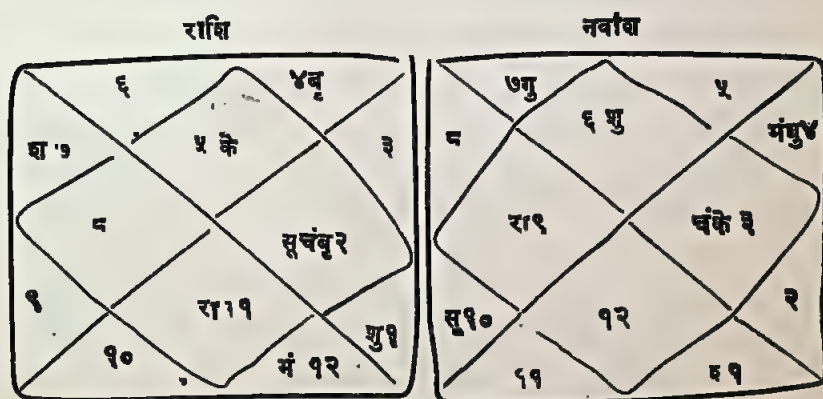 राशि
नवांश
६
४बृ
श ७
५ के
३
८
सूचंबु२
९
रा११
शु१
१०
मं १२
७गु
५
८
६ शु
मंघु४
रा९
चंके ३
सू१०
१२
२
११